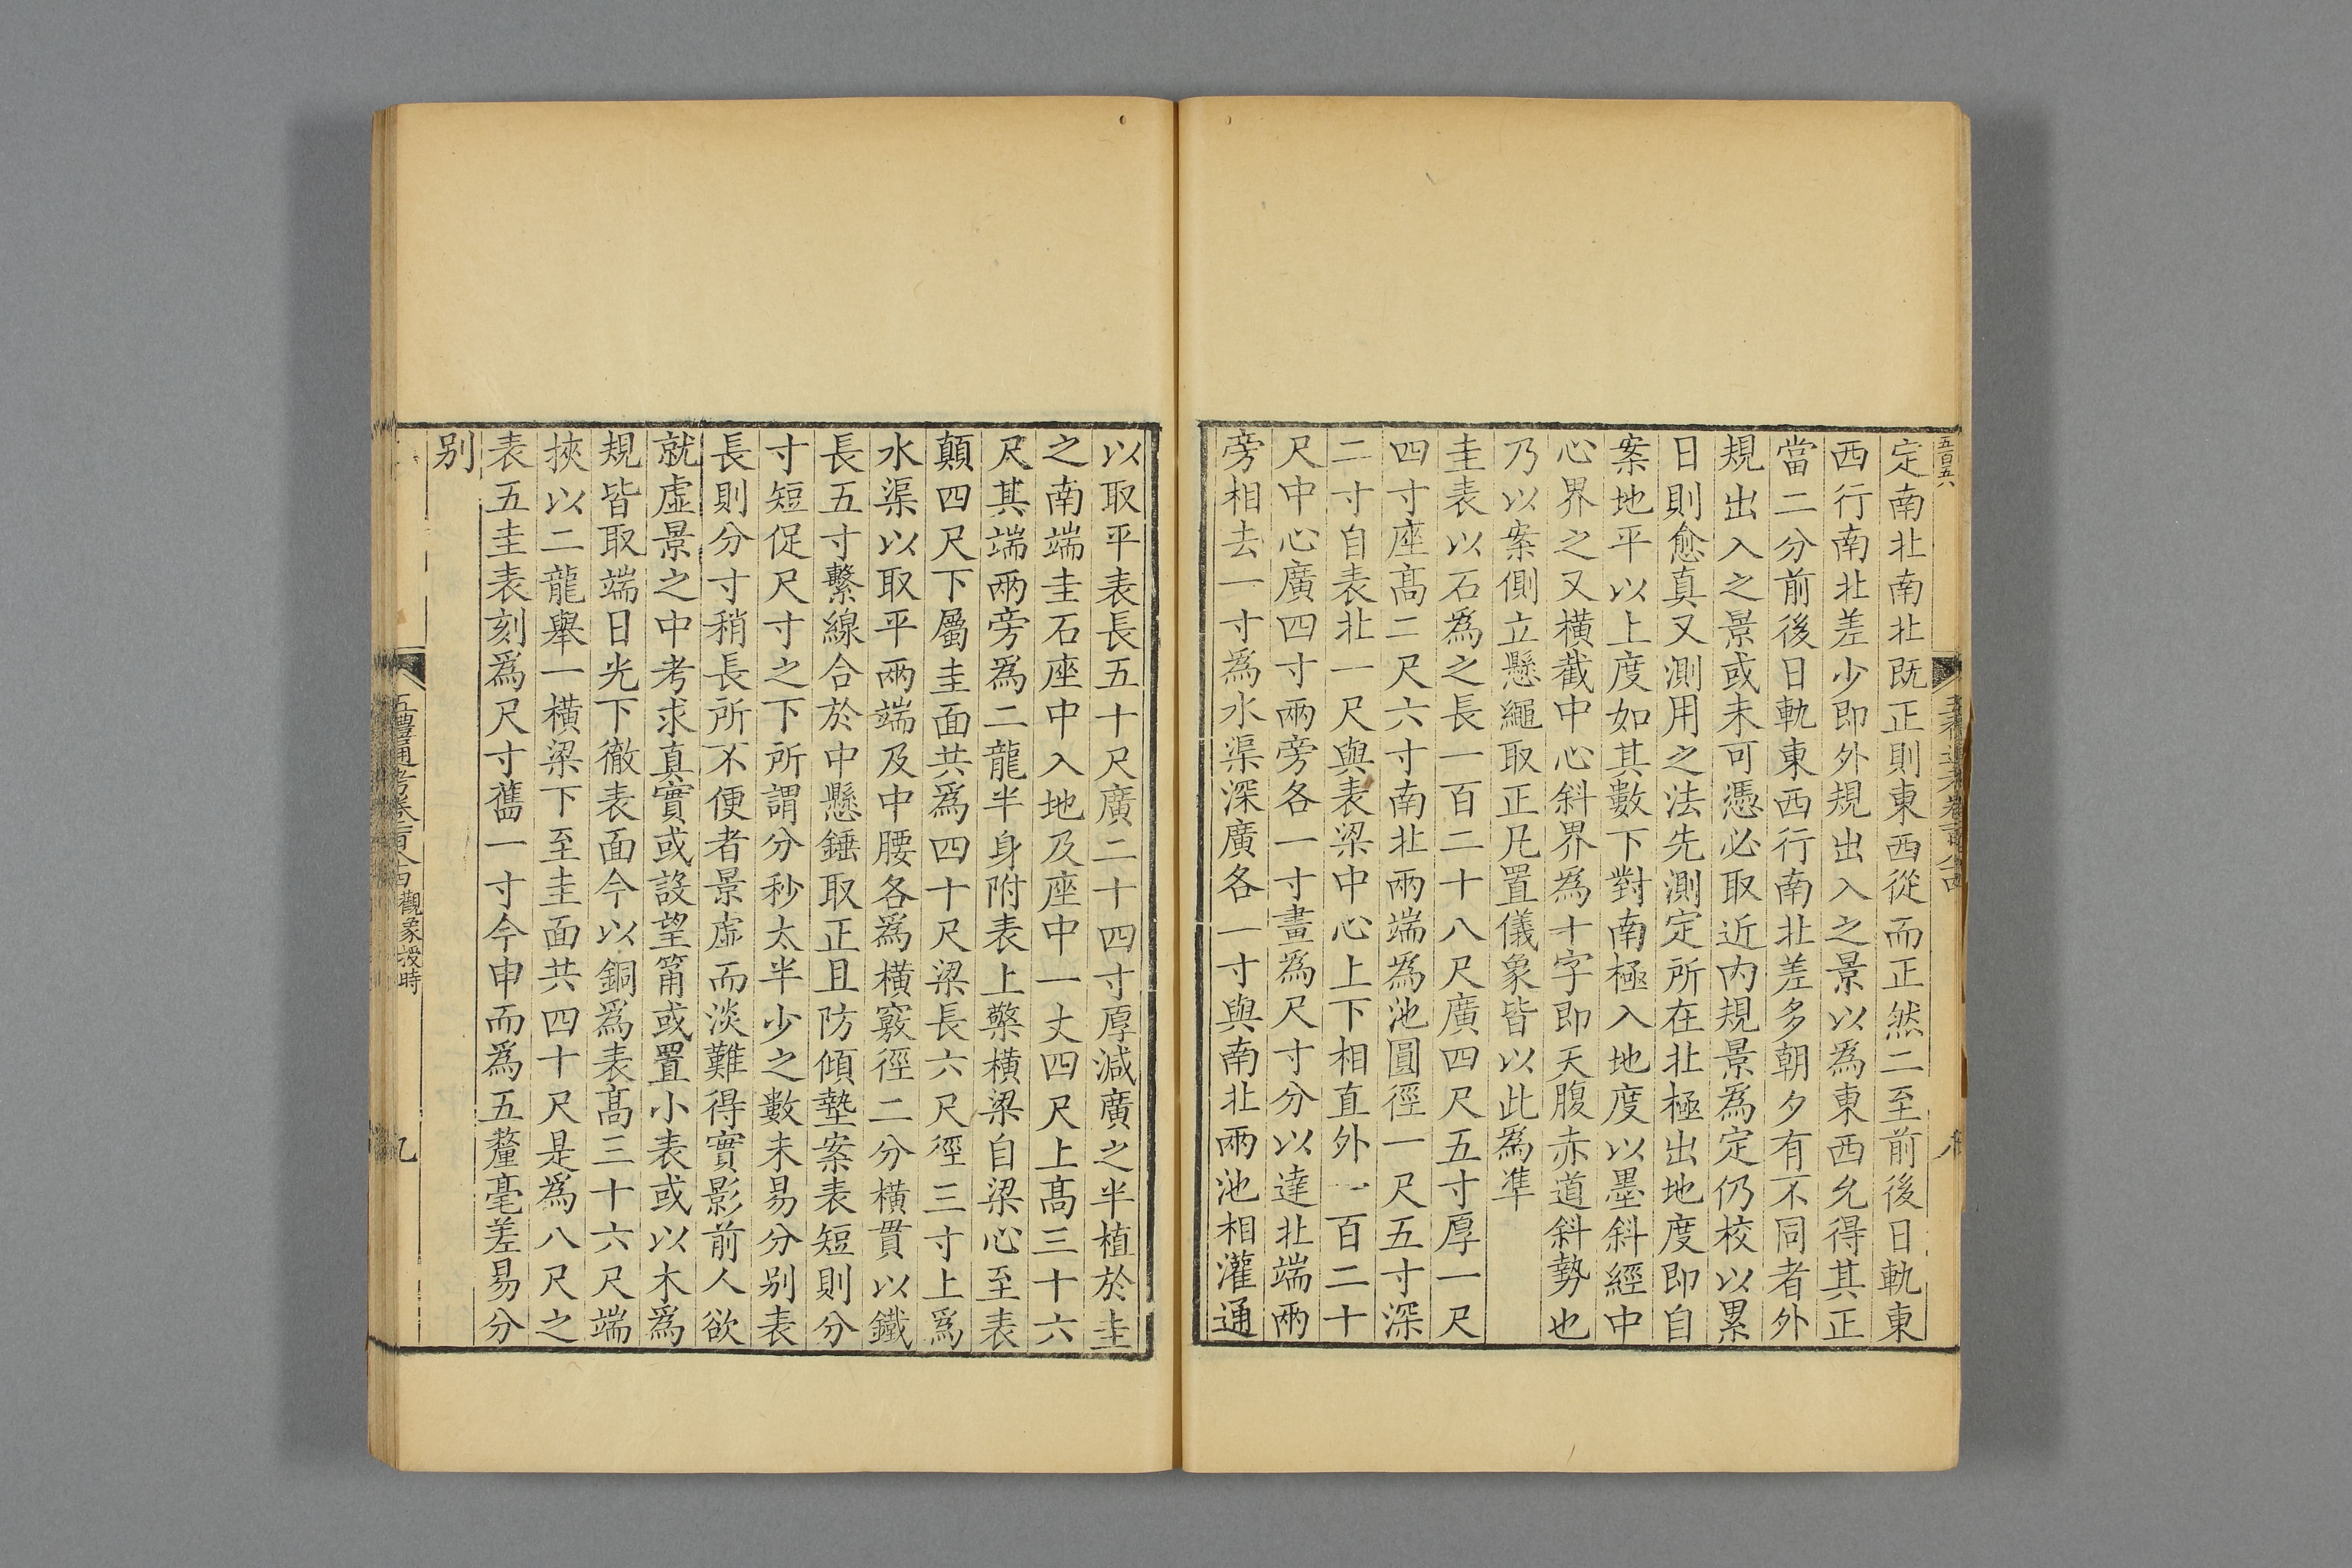 五百五八
定南北南北既正則東西從而正然二至前後日軌東
西行南北差少即外規出入之景以為東西允得其正
當二分前後日軌東西行南北差多朝夕有不同者外
規出入之景或未可憑必取近內規景為定仍校以累
日則愈真又測用之法先測定所在北極出地度即自
案地平以上度如其數下對南極入地度以墨斜經中
心界之又橫截中心斜界為十字即天腹赤道斜勢也
乃以案側立懸繩取正凡置儀象皆以此為準
圭表以石為之長一百二十八尺廣四尺五寸厚一尺
四寸座高二尺六寸南北兩端為池圓徑一尺五寸深
二寸自表北一尺與表梁中心上下相直外一百二十
尺中心廣四寸兩旁各一寸畫為尺寸分以達北端兩
旁相去一寸為水渠深廣各一寸與南北兩池相灌通
以取平表長五十尺廣二十四寸厚減廣之半植於圭
之南端圭石座中入地及座中一丈四尺上高三十六
尺其端兩旁為二龍半身附表上擎橫梁自梁心至表
顛四尺下屬圭面共為四十尺梁長六尺徑三寸上為
水渠以取平兩端及中腰各為橫竅徑二分橫貫以鐵
長五寸繫線合於中懸錘取正且防傾墊案表短則分
寸短促尺寸之下所謂分秒太半少之數未易分别表
長則分寸稍長所不便者景虛而淡難得實影前人欲
就虛景之中考求真實或設望筩或置小表或以木為
規皆取端日光下徹表面今以銅為表高三十六尺端
挾以二龍舉一橫梁下至圭面共四十尺是為八尺之
表五圭表刻為尺寸舊一寸今申而為五釐毫差易分
别
五禮通考卷一百八十四 觀象授時
九